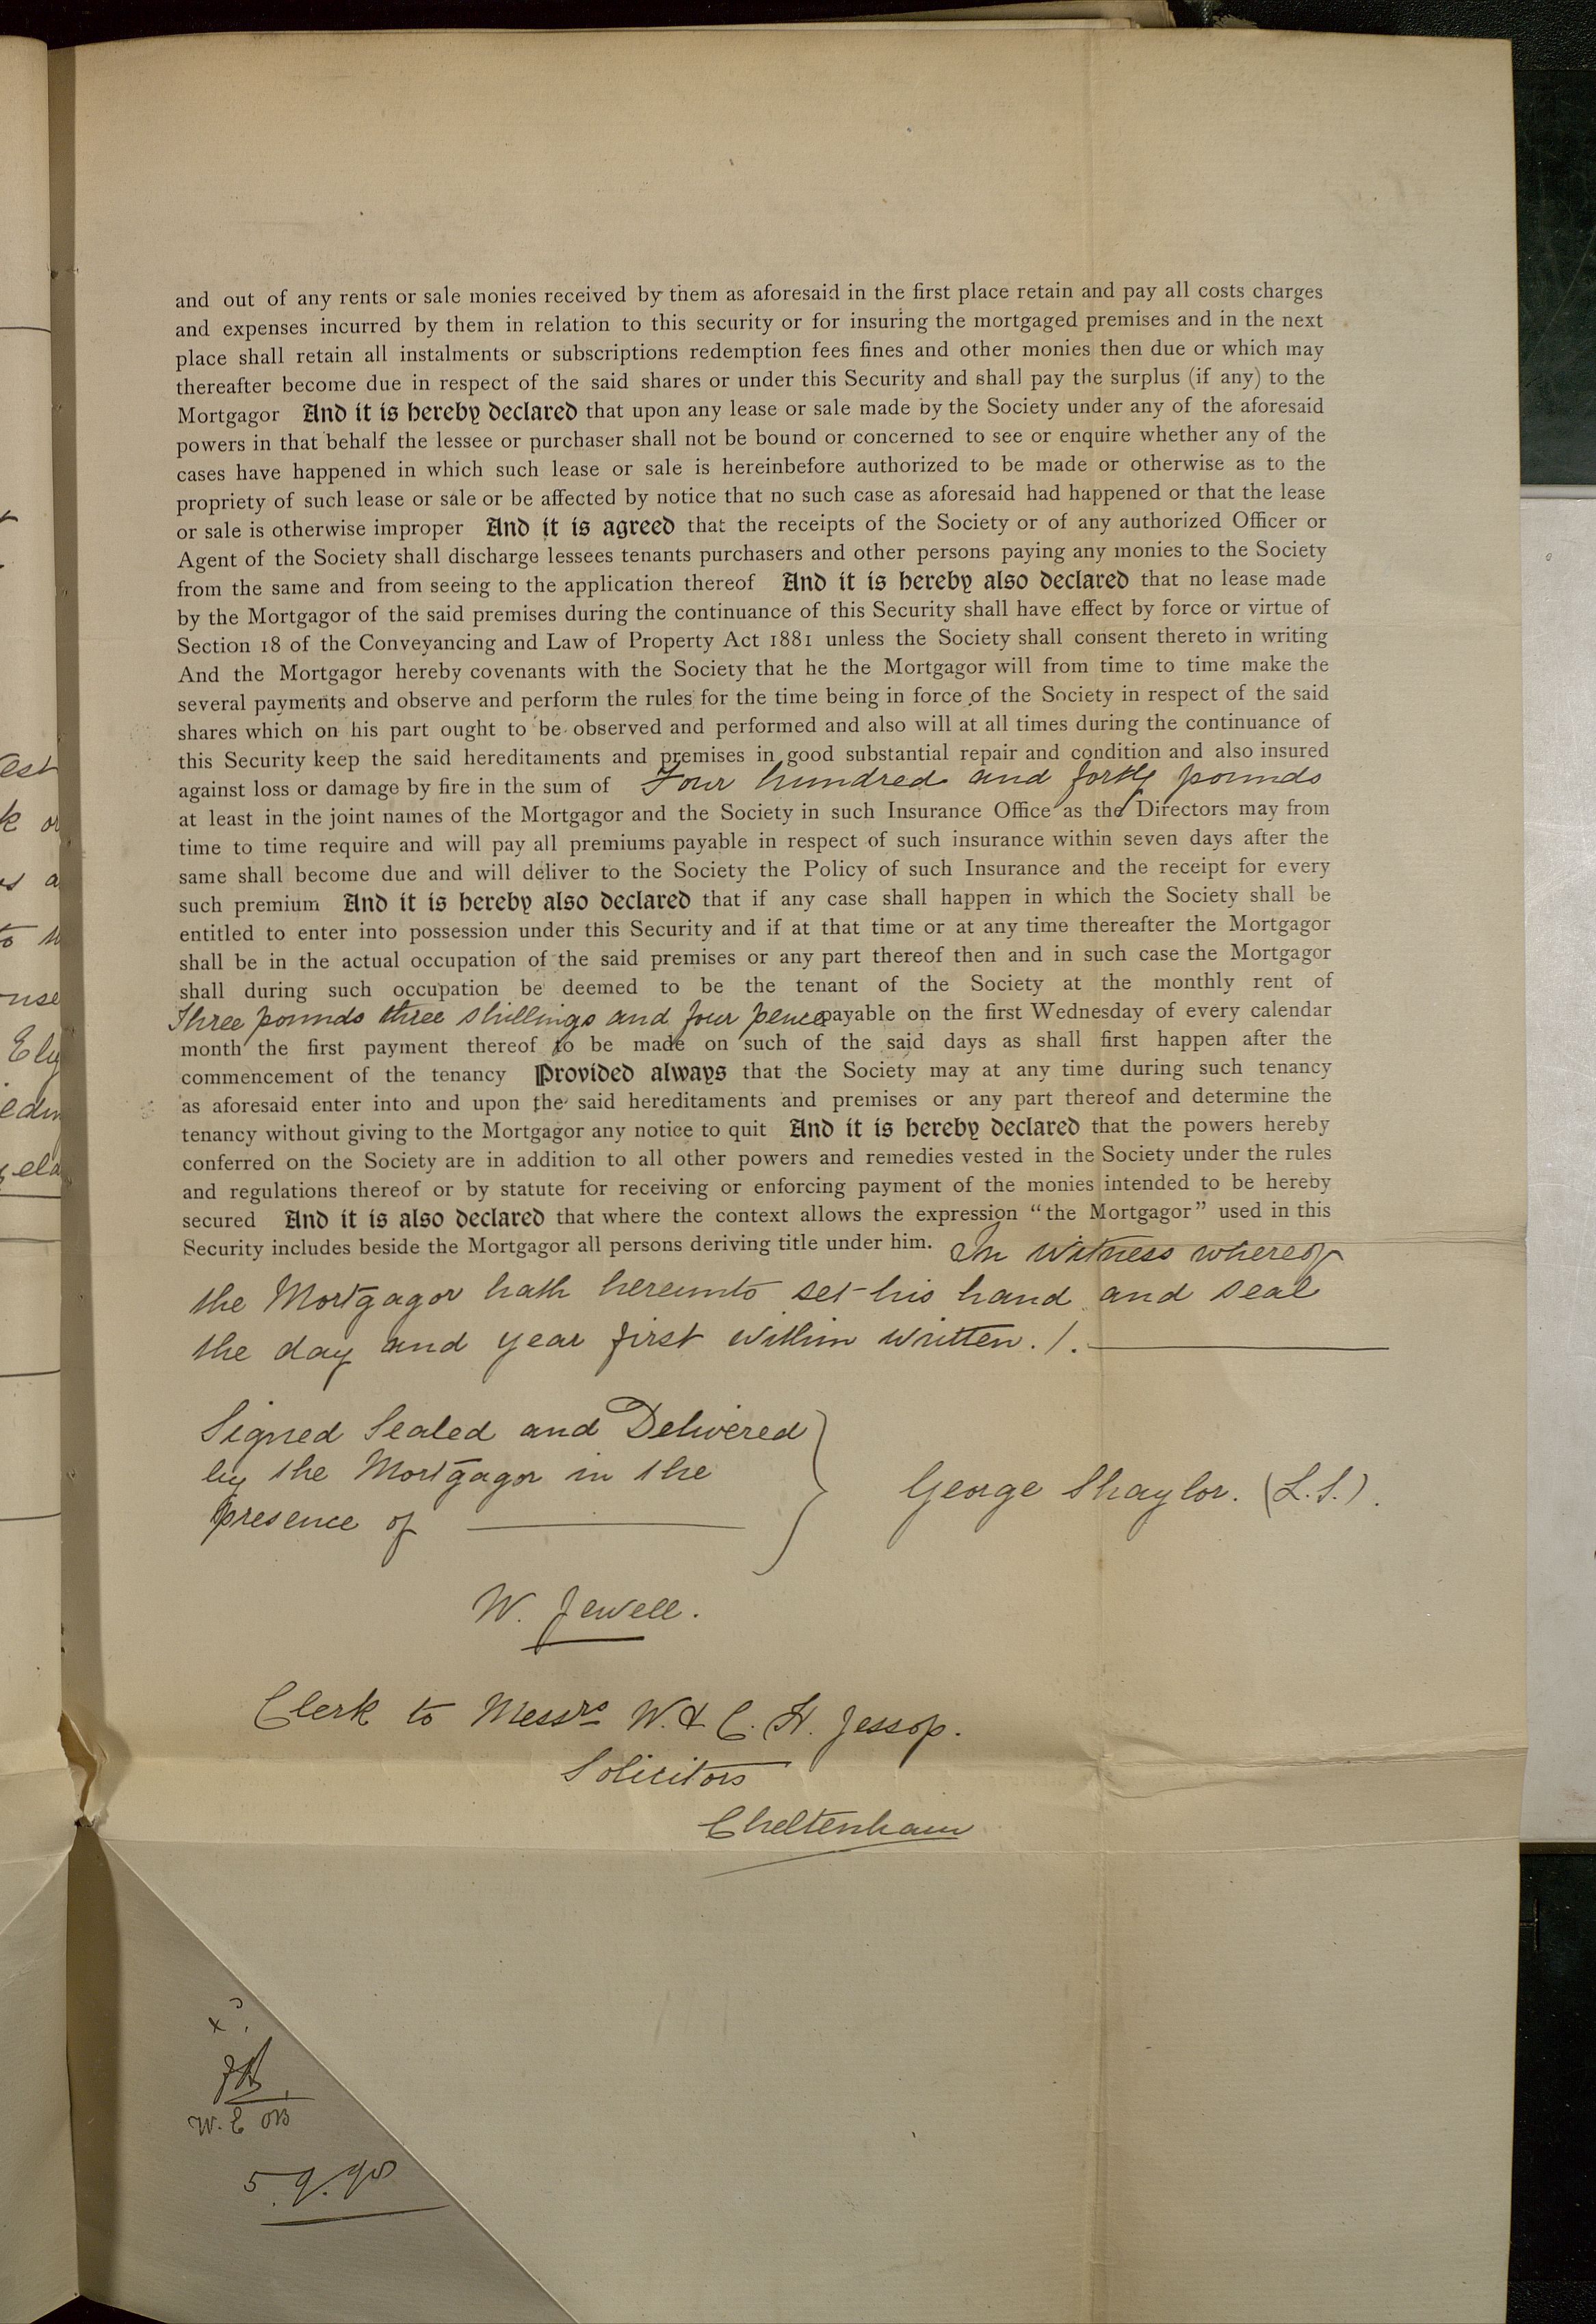 and out of any rents or sale monies received by them as aforesaid in the first place retain and pay all costs charges
and expenses incurred by them in relation to this security or for insuring the mortgaged premises and in the next
place shall retain all instalments or subscriptions redemption fees fines and other monies then due or which may
thereafter become due in respect of the said shares or under this Security and shall pay the surplus (if any) to the
Mortgagor And it is hereby declared that upon any lease or sale made by the Society under any of the aforesaid
powers in that behalf the lessee or purchaser shall not be bound or concerned to see or enquire whether any of the
cases have happened in which such lease or sale is hereinbefore authorized to be made or otherwise as to the
propriety of such lease or sale or be affected by notice that no such case as aforesaid had happened or that the lease
or sale is otherwise improper And it is agreed that the receipts of the Society or of any authorized Officer or
Agent of the Society shall discharge lessees tenants purchasers and other persons paying any monies to the Society
from the same and from seeing to the application thereof And it is hereby also declared that no lease made
by the Mortgagor of the said premises during the continuance of this Security shall have effect by force or virtue of
Section 18 of the Conveyancing and Law of Property Act 1881 unless the Society shall consent thereto in writing
And the Mortgagor hereby covenants with the Society that he the Mortgagor will from time to time make the
several payments and observe and perform the rules for the time being in force of the Society in respect of the said
shares which on his part ought to be observed and performed and also will at all times during the continuance of
this Security keep the said hereditaments and premises in good substantial repair and condition and also insured
against loss or damage by fire in the sum of Four hundred and forty pounds
at least in the joint names of the Mortgagor and the Society in such Insurance Office as the Directors may from
time to time require and will pay all premiums payable in respect of such insurance within seven days after the
same shall become due and will deliver to the Society the Policy of such Insurance and the receipt for every
such premium And it is hereby also declared that if any case shall happen in which the Society shall be
entitled to enter into possession under this Security and if at that time or at any time thereafter the Mortgagor
shall be in the actual occupation of the said premises or any part thereof then and in such case the Mortgagor
shall during such occupation be deemed to be the tenant of the Society at the monthly rent of
Three pounds three shillings and four pence payable on the first Wednesday of every calendar
month the first payment thereof to be made on such of the said days as shall first happen after the
commencement of the tenancy Provided always that the Society may at any time during such tenancy
as aforesaid enter into and upon the said hereditaments and premises or any part thereof and determine the
tenancy without giving to the Mortgagor any notice to quit And it is hereby declared that the powers hereby
conferred on the Society are in addition to all other powers and remedies vested in the Society under the rules
and regulations thereof or by statute for receiving or enforcing payment of the monies intended to be hereby
secured And it is also declared that where the context allows the expression "the Mortgagor" used in this
Security includes beside the Mortgagor all persons deriving title under him. In Witness whereof
the Mortgagor hath hereunto set his hand and seal
the day and year first within written./.
Signed Sealed and Delivered
by the Mortgagor in the
presence of
George Shaylor. (L.S.).
W. Jewell.
Clerk to Messrs W. & C. H. Jessop.
Solicitors
Cheltenham
W. E OB
5.9.98